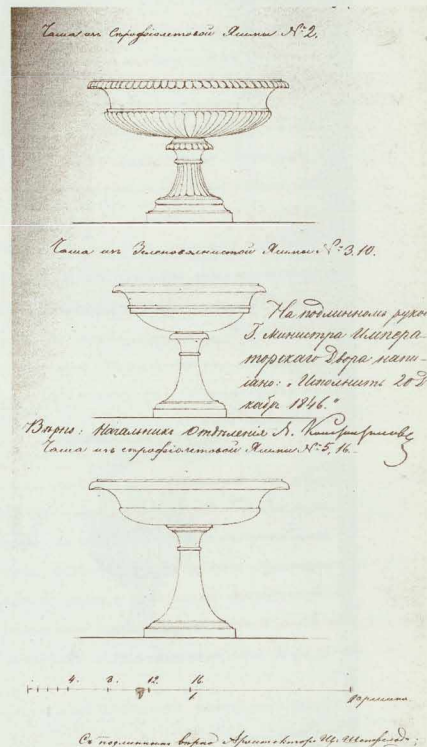 Чаша изъ Сѣрофіолетовой Яшмы № 2.
Чаша изъ Зеленоволнистой Яшмы № 3, 10.
На подлинномъ рукою
Г. Министра Импера-
торскаго Двора напи-
сано: „Исполнить 20 Де
кабр 1846."
Вѣрно: Начальникъ Отдѣленія А.
Чаша изъ сѣрофіолетовой Яшмы № 5, 16.
4. 8. 12. 16.
1 аршина
Съ подлиннымъ вѣрно Архитекторъ